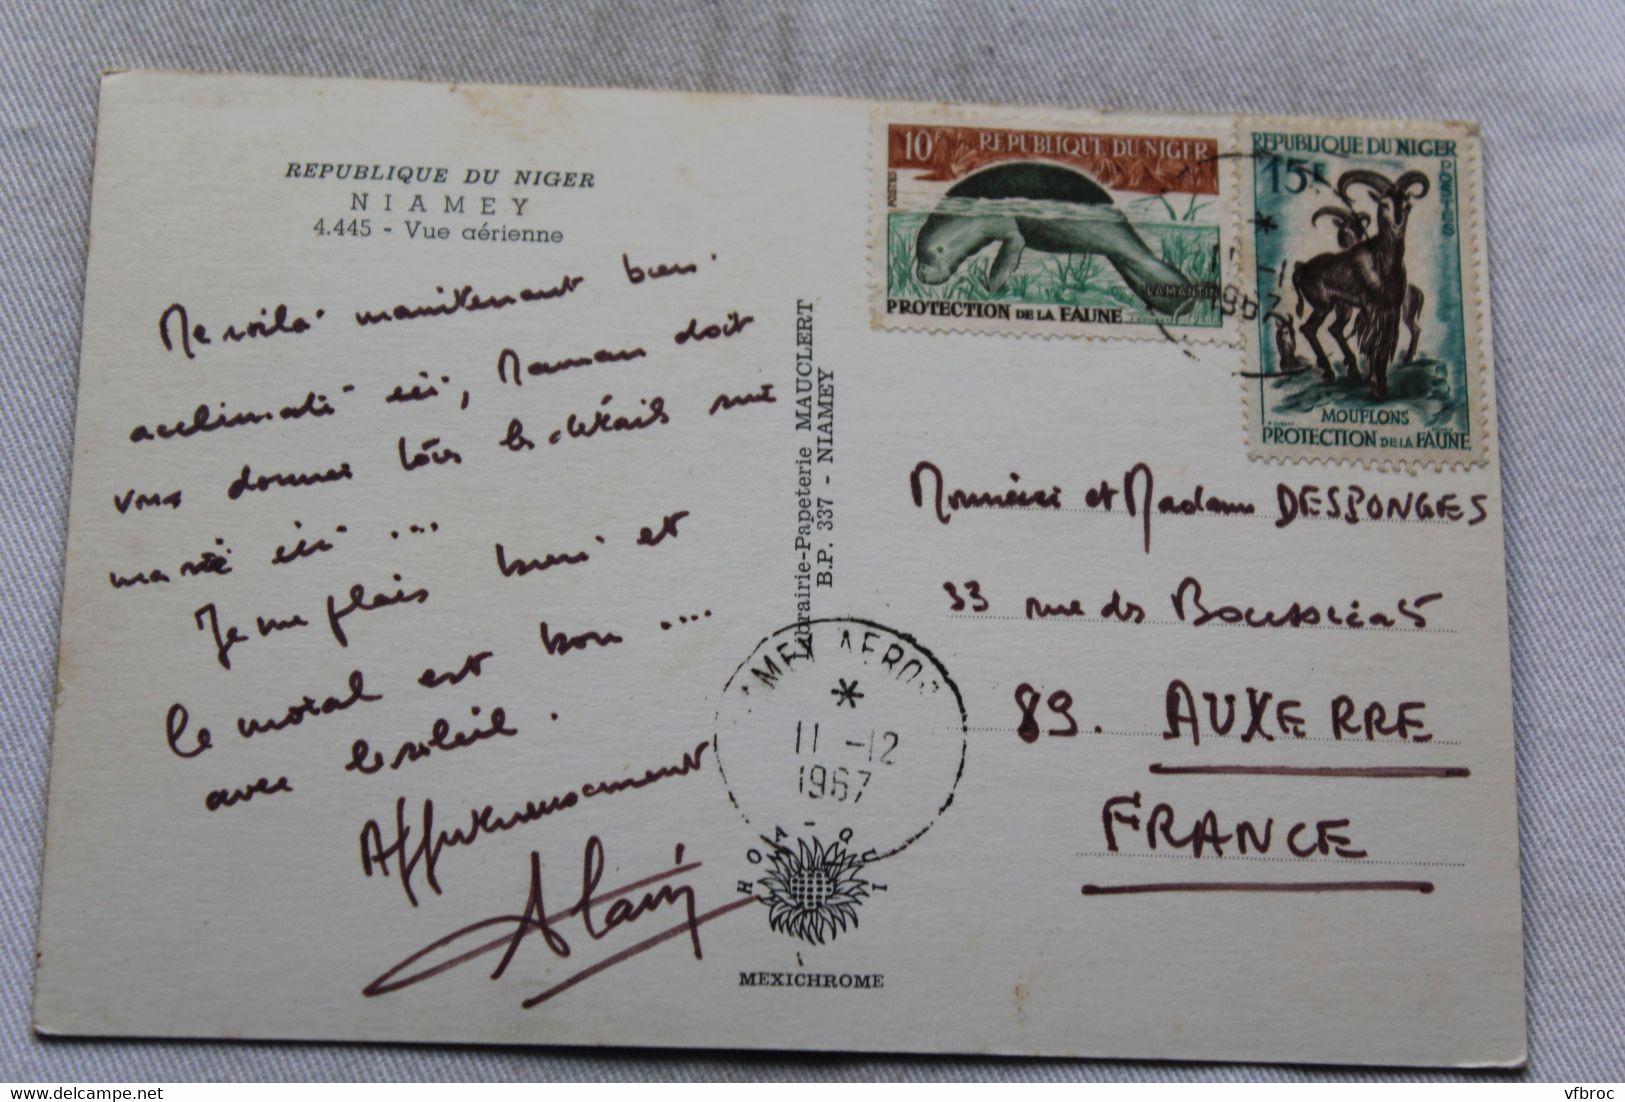 REPUBLIQUE DU NIGER
NIAMEY
4.445 - Vue aérienne
Me voilà maintenant bien
acclimaté ici, Maman doit
vous donner tous les détails sur
ma vie ici ...
Je me plais bien et
le moral est bon ....
avec le soleil.
Affectueusement
Alain
Librairie-Papeterie MAUCLERT
B.P. 337 - NIAMEY
10F REPUBLIQUE DU NIGER
POSTES
LAMANTIN
PROTECTION DE LA FAUNE
REPUBLIQUE DU NIGER
15F
POSTES
MOUFLONS
PROTECTION DE LA FAUNE
1967
Monsieur et Madame DESPONGES
33 rue des Boussicats
89. AUXERRE
FRANCE
AMEY AERO
*
11 -12
1967
HOA-QUI
MEXICHROME
delcampe.net
vfbroc